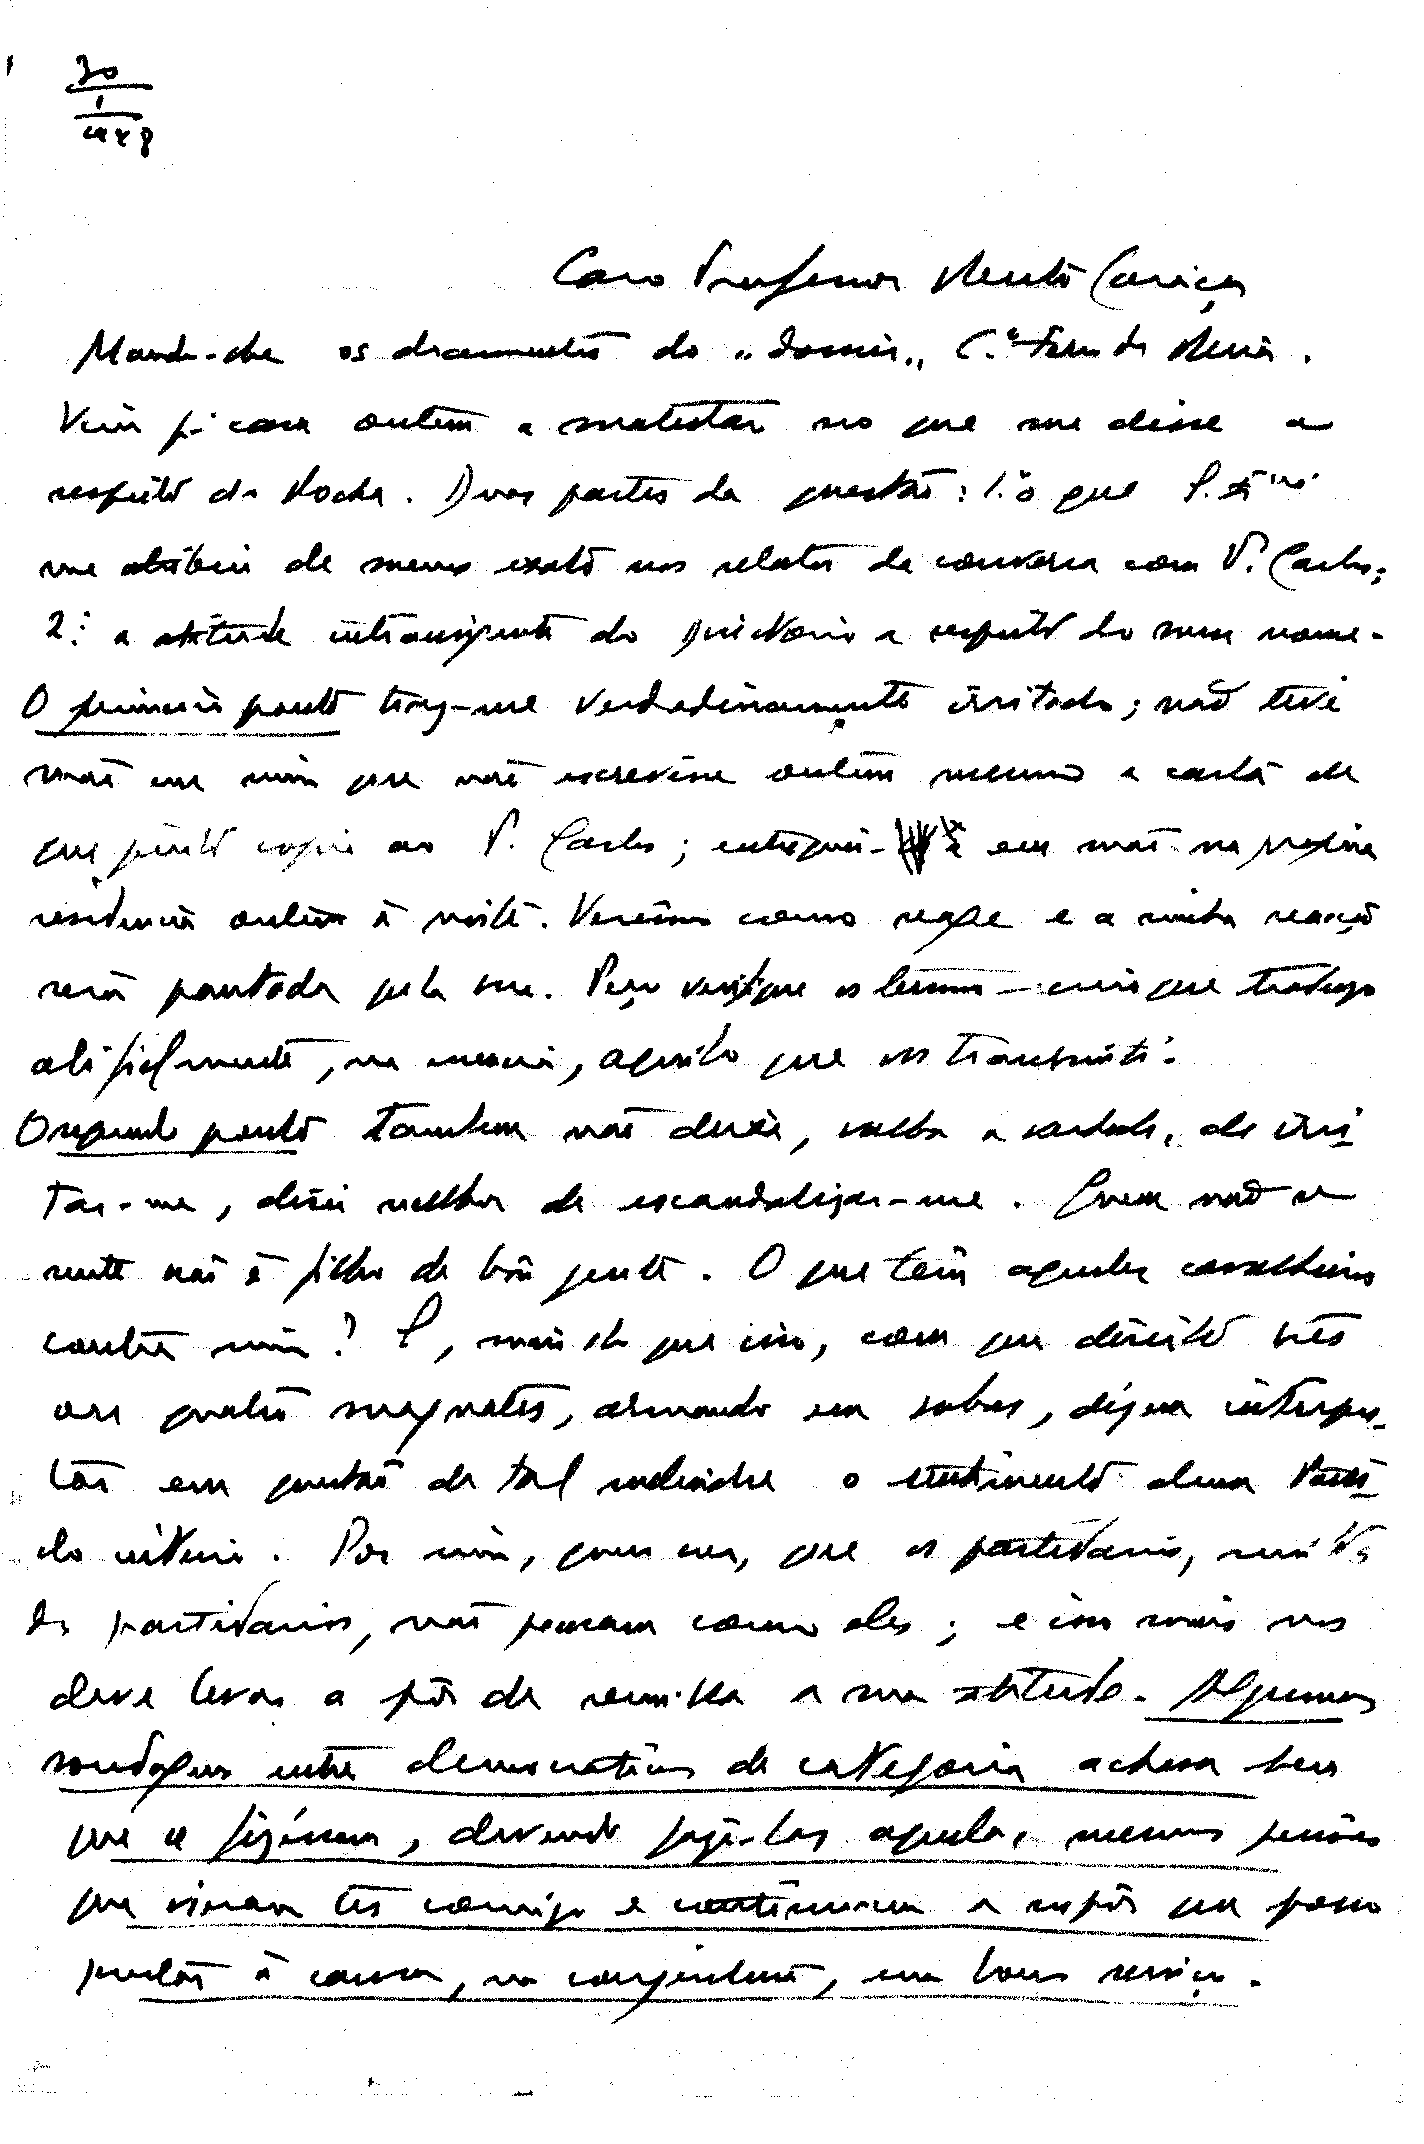 30
1
1948
Caro Professor Bento Caraça
Mando-lhe os documentos do "dossier" C.ª Fern. de Meneses.
Vim p.ª casa ontem a matutar no que me disse a
respeito da Rocha. Duas partes da questão: 1.º o que
me atribui de menos exato nos relatos da conversa com P. Carlos;
2.º a atitude intransigente do Directório a respeito do meu nome.
O primeiro ponto traz-me verdadeiramente irritado; não tive
mão em mim que não escrevesse ontem mesmo a carta de
que junto copia ao P. Carlos; entreguei-a em mão na própria
residência ontem à noite. Veremos como reage e a minha reacção
será pautada pela sua. Peço verifique os termos — creio que traduzo
ali fielmente, na essencia, aquilo que nos transmiti.
O segundo ponto tambem não deixa, valha a verdade, de irri
tar-me, direi melhor de escandalizar-me. Quem não se
sente não é filho de boa gente. O que têm aqueles cavalheiros
contra mim? E, mais do que isso, com que direito três
ou quatro magnates, armando em sobas, digam interpre-
tar em questão de tal melindre o sentimento dum Parti
do inteiro. Por mim, penso eu, que os partidários, muitos
dos partidarios, não pensam como eles; e isso mais nos
deve levar a pôr de remissa a sua atitude. Algumas
sondagens entre democraticos de categoria achava bem
que se fizessem, devendo fazê-las aquelas mesmas pessoas
que vieram ter comigo e continuam a supôr que posso
prestar à causa, na conjuntura, um bom serviço.